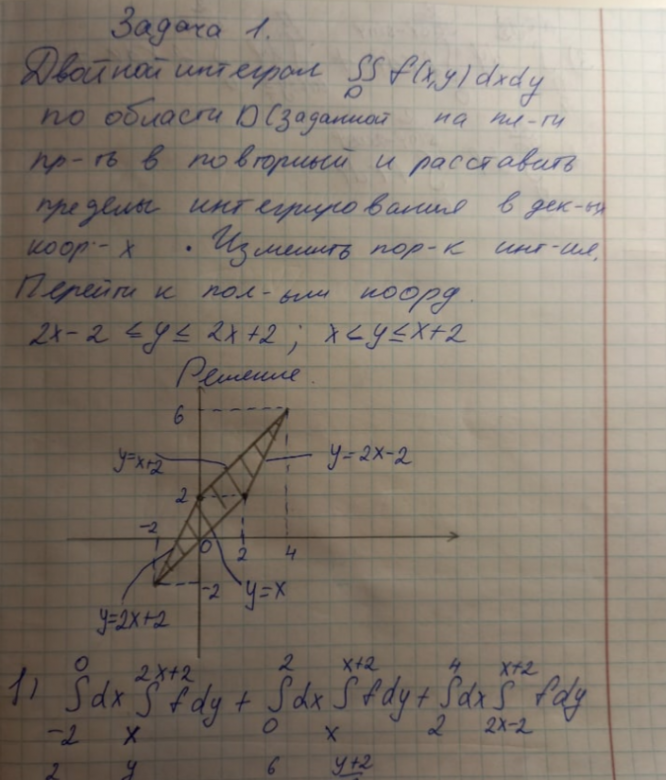 Задача 1.
Двойной интеграл ∬ f(x,y) dxdy
D
по области D (заданной на пл-ти
пр-ть в повторный и расставить
пределы интегрирования в дек-ых
коор-х. Изменить пор-к инт-ия.
Перейти к пол-ым коорд.
2x-2 ≤ y ≤ 2x+2 ; x ≤ y ≤ x+2
Решение.
6
y=x+2
y=2x-2
2
-2 0 2 4
-2
y=x
y=2x+2
0 2x+2 2 x+2 4 x+2
1) ∫dx ∫ f dy + ∫dx ∫ f dy + ∫dx ∫ f dy
-2 x 0 x 2 2x-2
2 y 6 y+2